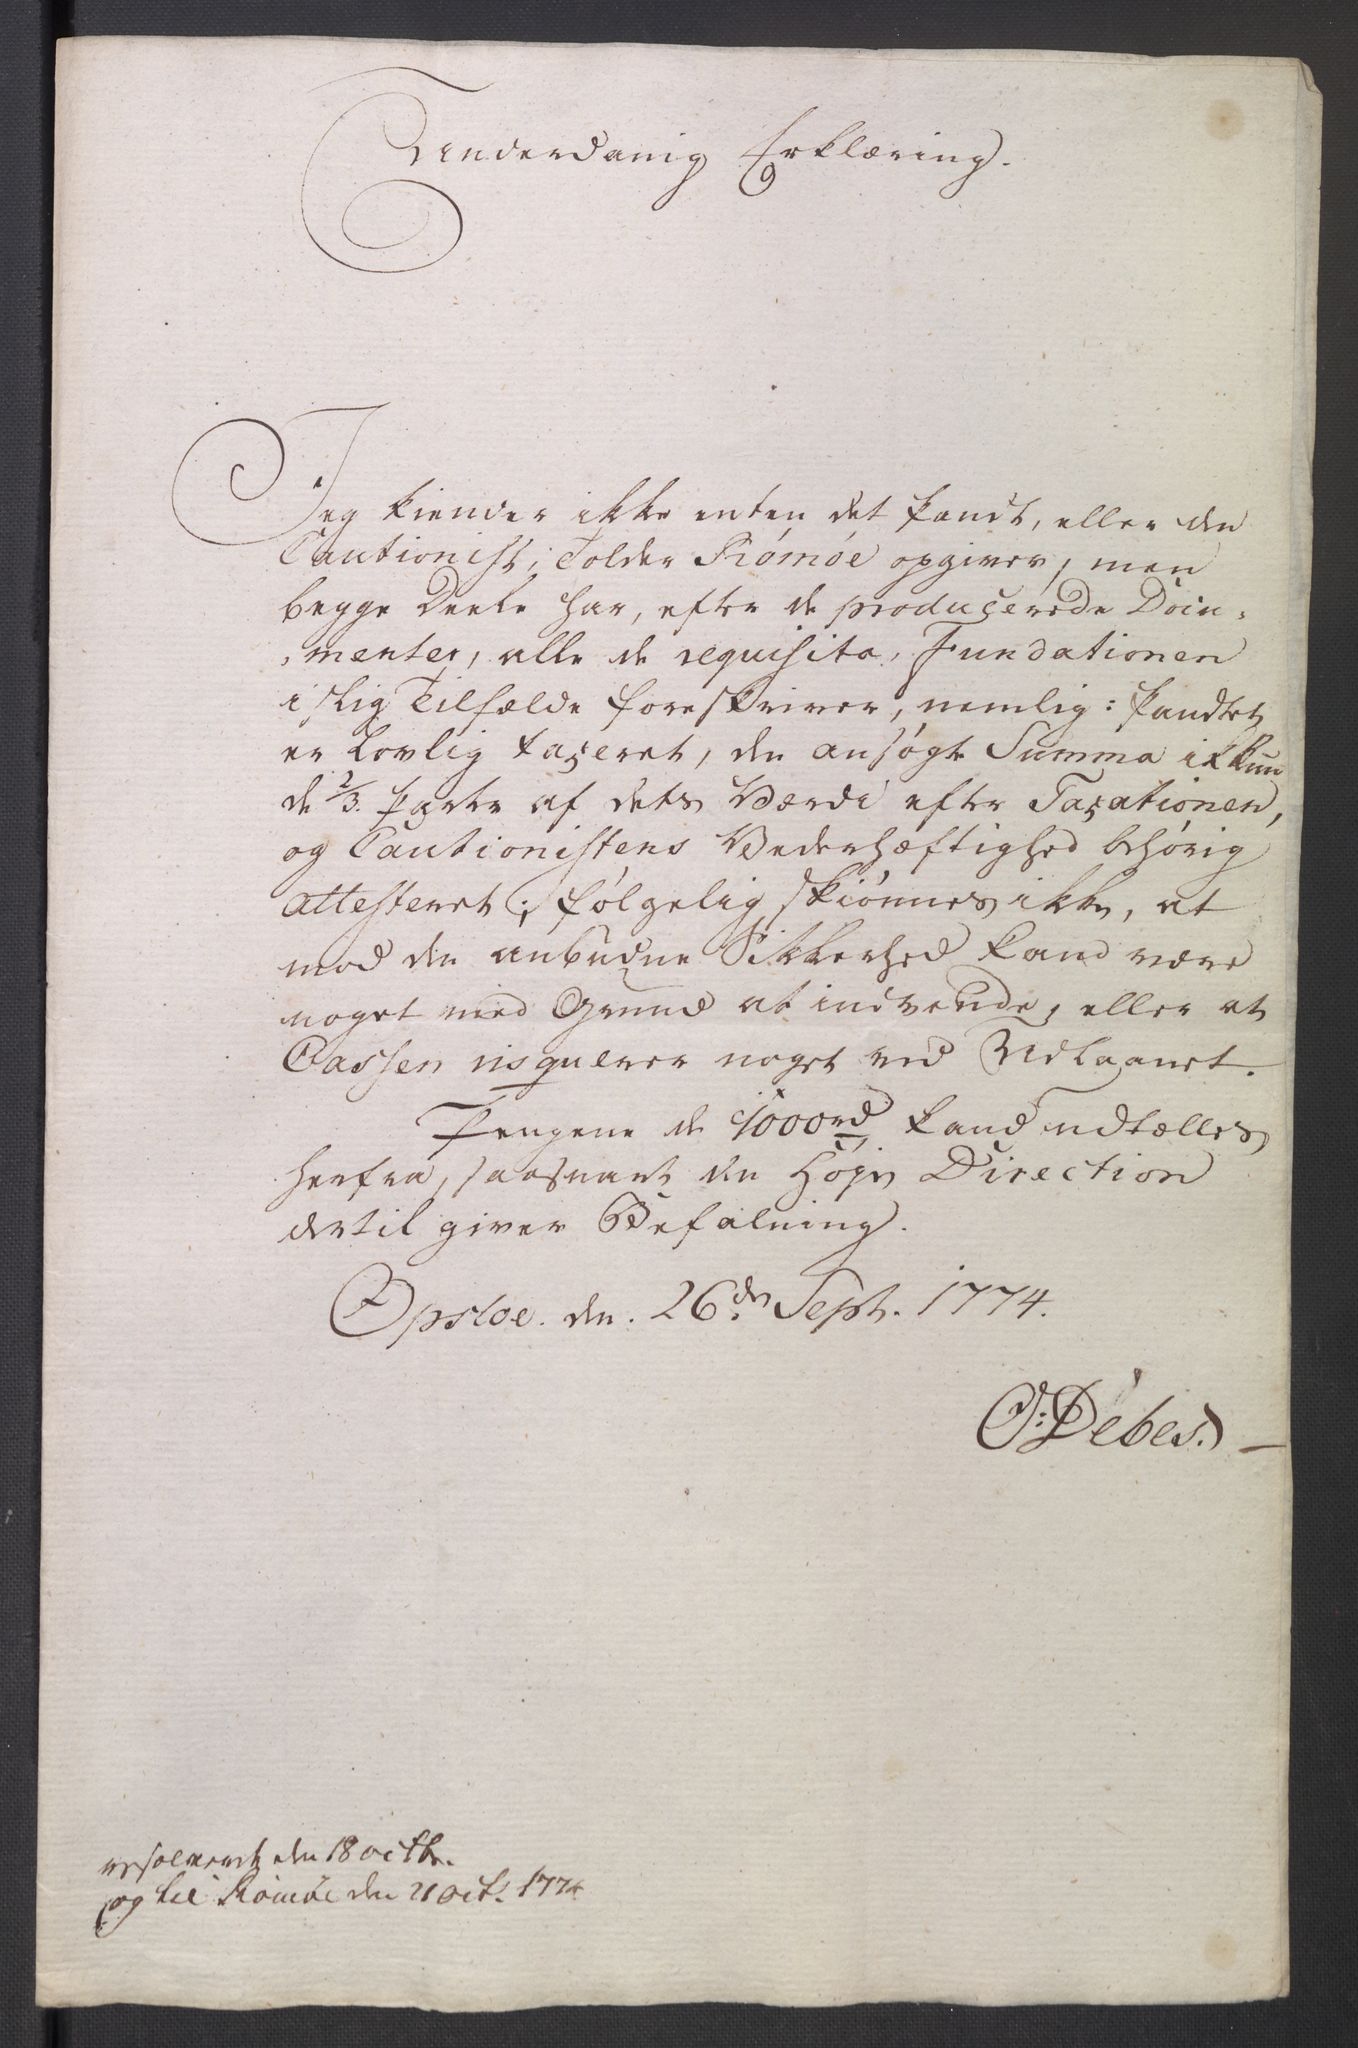 Underdanig Erklæring.
Jeg kiender ikke enten det Pandt, eller den
Cautionist, Tolder Römöe opgiver, men
begge Deele har, efter de producerede Docu-
menter, alle de requisita, Fundationen
i slig Tilfælde foreskriver, nemlig: Pandtet
er Lovlig taxeret, den ansøgte Summa ikkun
de 2/3. Parte af dets Værdi efter Taxationen,
og Cautionistens Vederhæftighed behørig
attesteret; følgelig skiønnes ikke, at
mod den anbudne Sikkerhed kand være
noget med Grund at indvende, eller at
Cassen risquerer noget ved Udlaanet.
Pengene de 1000 rd kand udtælles
herfra, saasnart den Höje Direction
dertil giver Befalning.
Opsloe. den. 26de Sept. 1774.
O: Debes.
resolveret den 18 octbr.
og til Römöe den 21 Oct. 1774